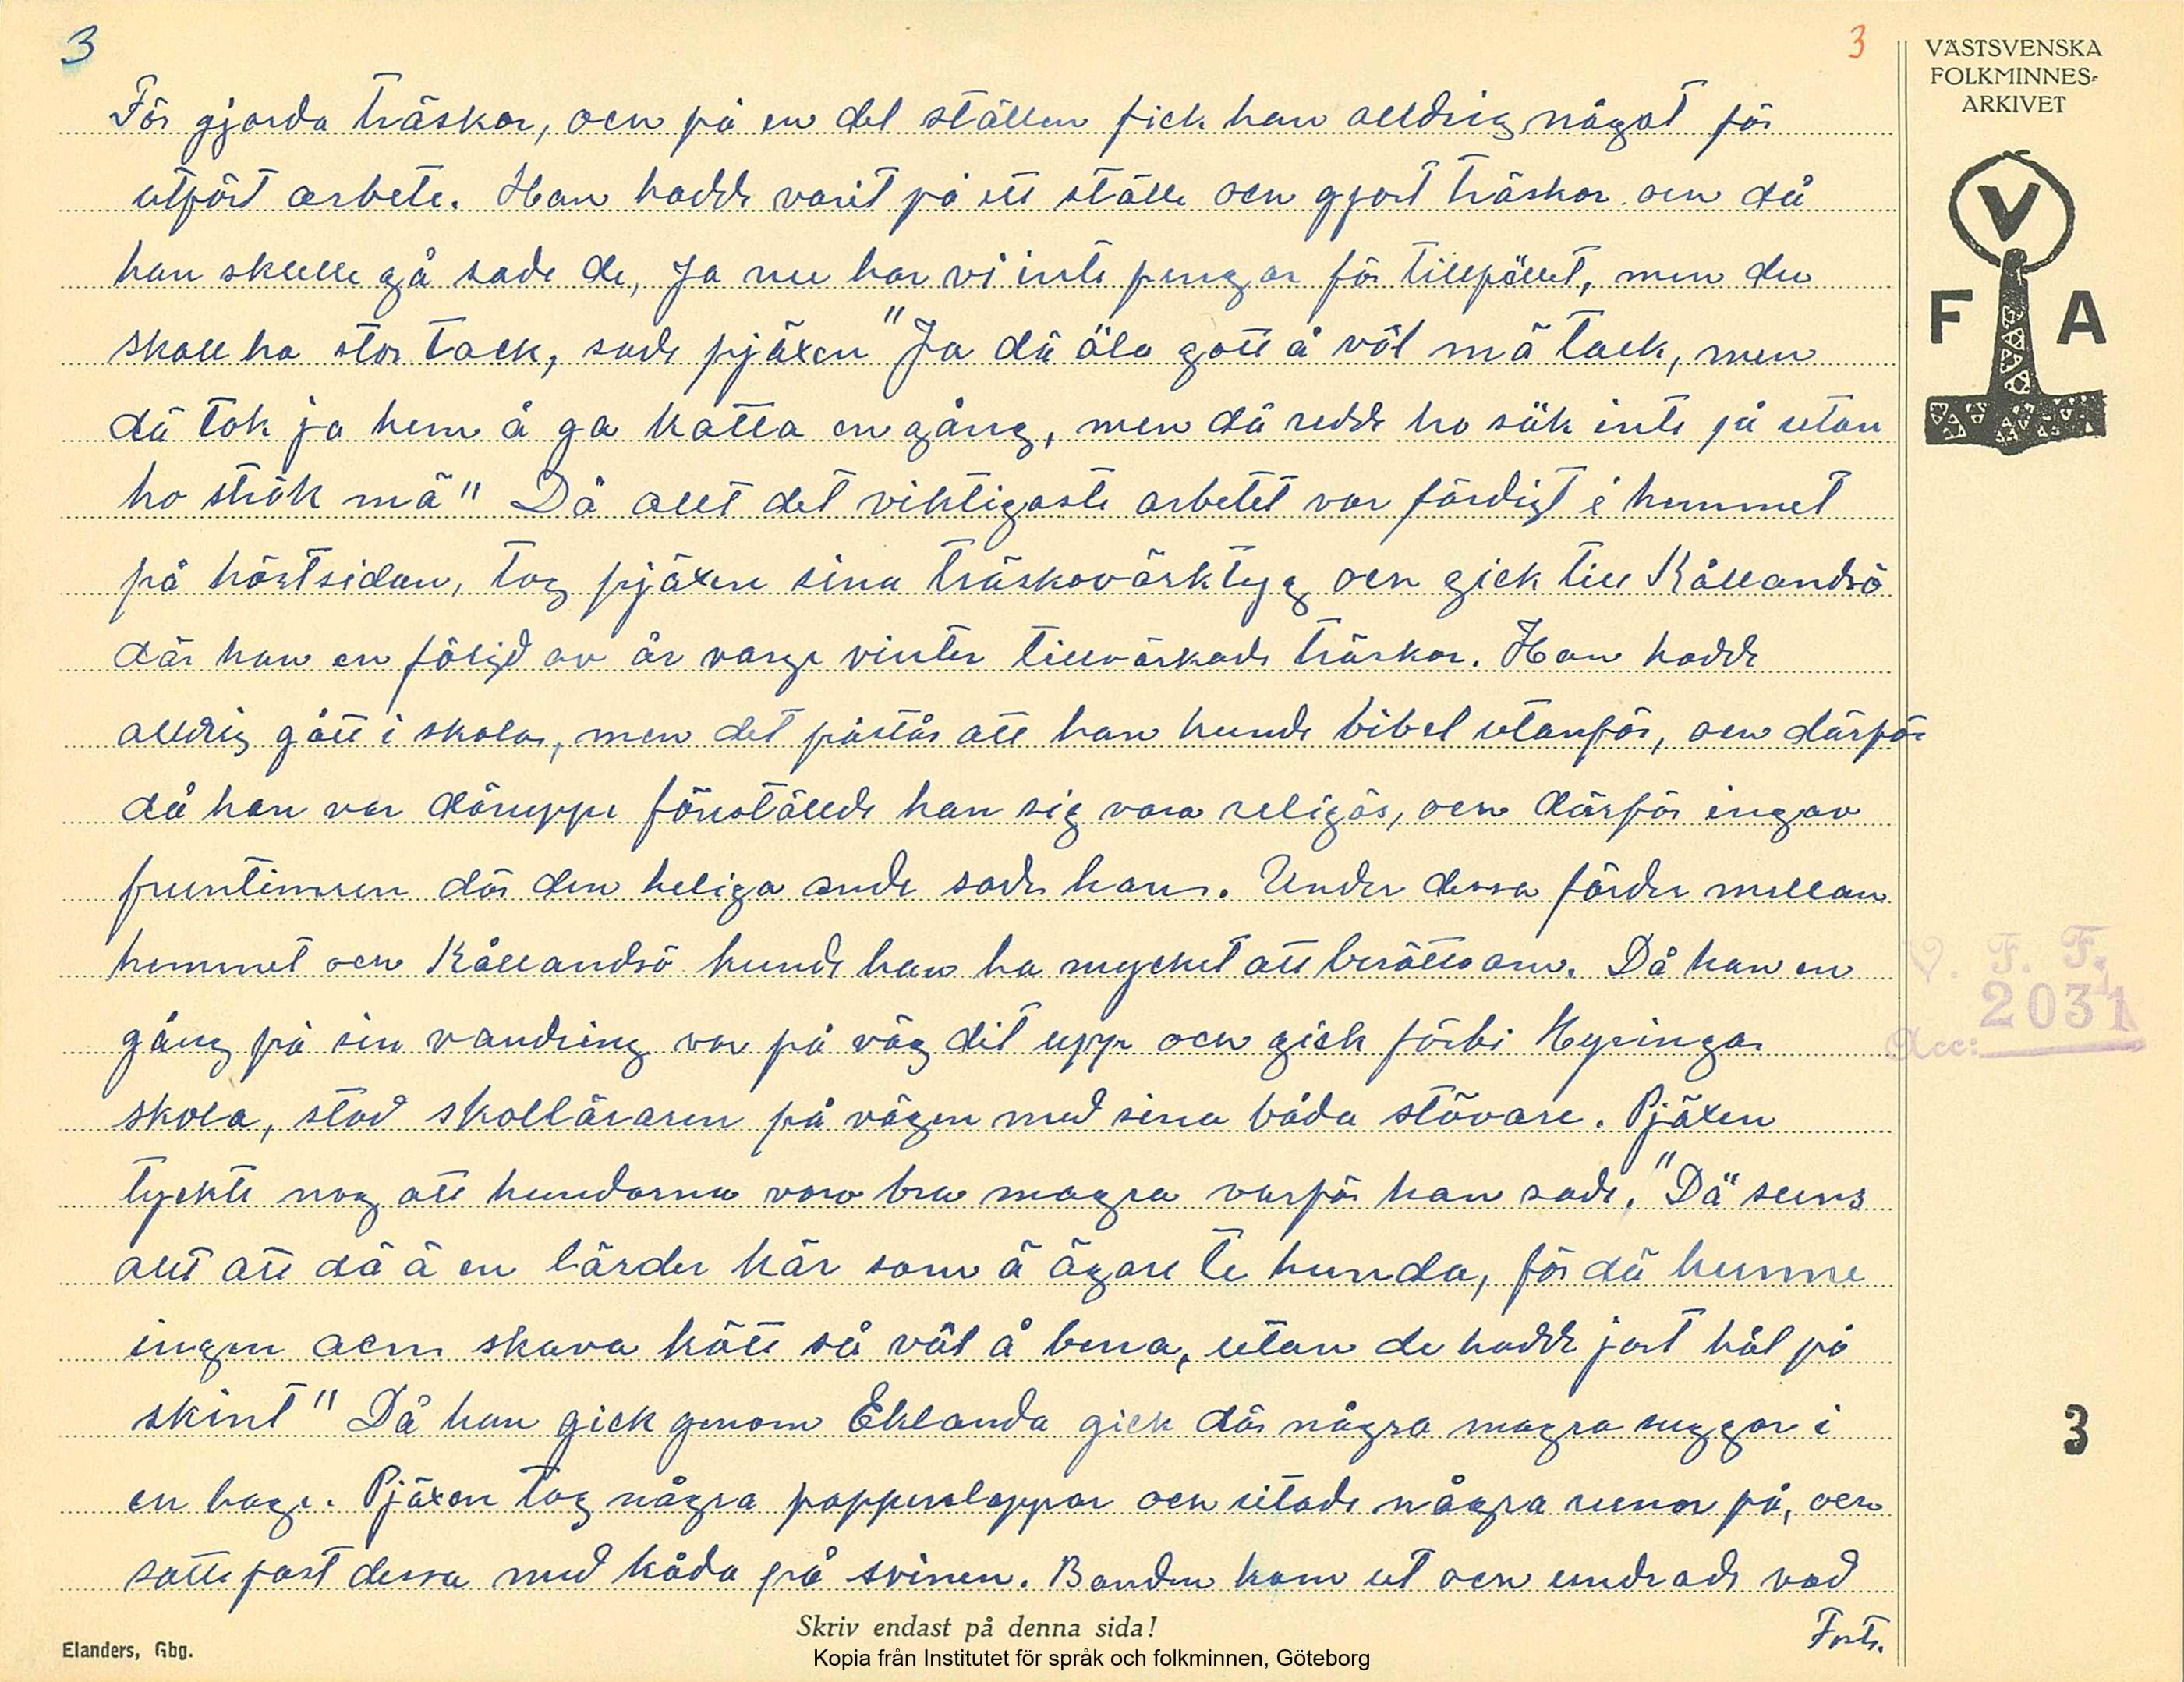 3
3
VÄSTSVENSKA
FOLKMINNES-
ARKIVET
V
F A
För gjorda träskor, och på en del ställen fick han alldrig något för
utfört arbete. Han hadde varit på ett ställe och gjort träskor och då
han skulle gå sade de, Ja nu har vi inte pengar för tillfället, men du
skall ha stor tack, sade pjäxen "Ja dä äla gott å väl mä tack, men
dä tok ja hem å ga katta en gång, men dä redde ho säk inte på utan
ho strök mä" Då allt det viktigaste arbetet var färdigt i hemmet
på höstsidan, tog pjäxen sina träskovärktyg och gick till Kållandsö
där han en följd av år varge vinter tillvärkade träskor. Han hadde
alldrig gått i skolan, men det påstås att han kunde bibel utanför, och därför
då han var däruppe föreställde han sig vara religös, och därför ingav
fruntimren där den heliga ande sade han. Under dessa färder mellan
hemmet och Kållandsö kunde han ha mycket att berätta om. Då han en
gång på sin vandring var på väg dit upp och gick förbi Hyringa
skola, stod skolläraren på vägen med sina båda stövare. Pjäxen
tyckte nog att hundarna voro bra magra varför han sade. "Dä" seens
allt att dä ä en lärder kär som ä ägare te hunda, för dä kunne
ingen aen skava kött så väl å bena, utan de hadde jort hål på
skint" Då han gick genom Eklanda gick där några magra suggor i
en hage. Pjäxen tog några papperslappar och ritade några runor på, och
satte fast dessa med kåda på svinen. Bonden kom ut och undrade vad
Forts.
V. F. F.
Acc: 2031
3
Skriv endast på denna sida!
Elanders, Gbg.
Kopia från Institutet för språk och folkminnen, Göteborg